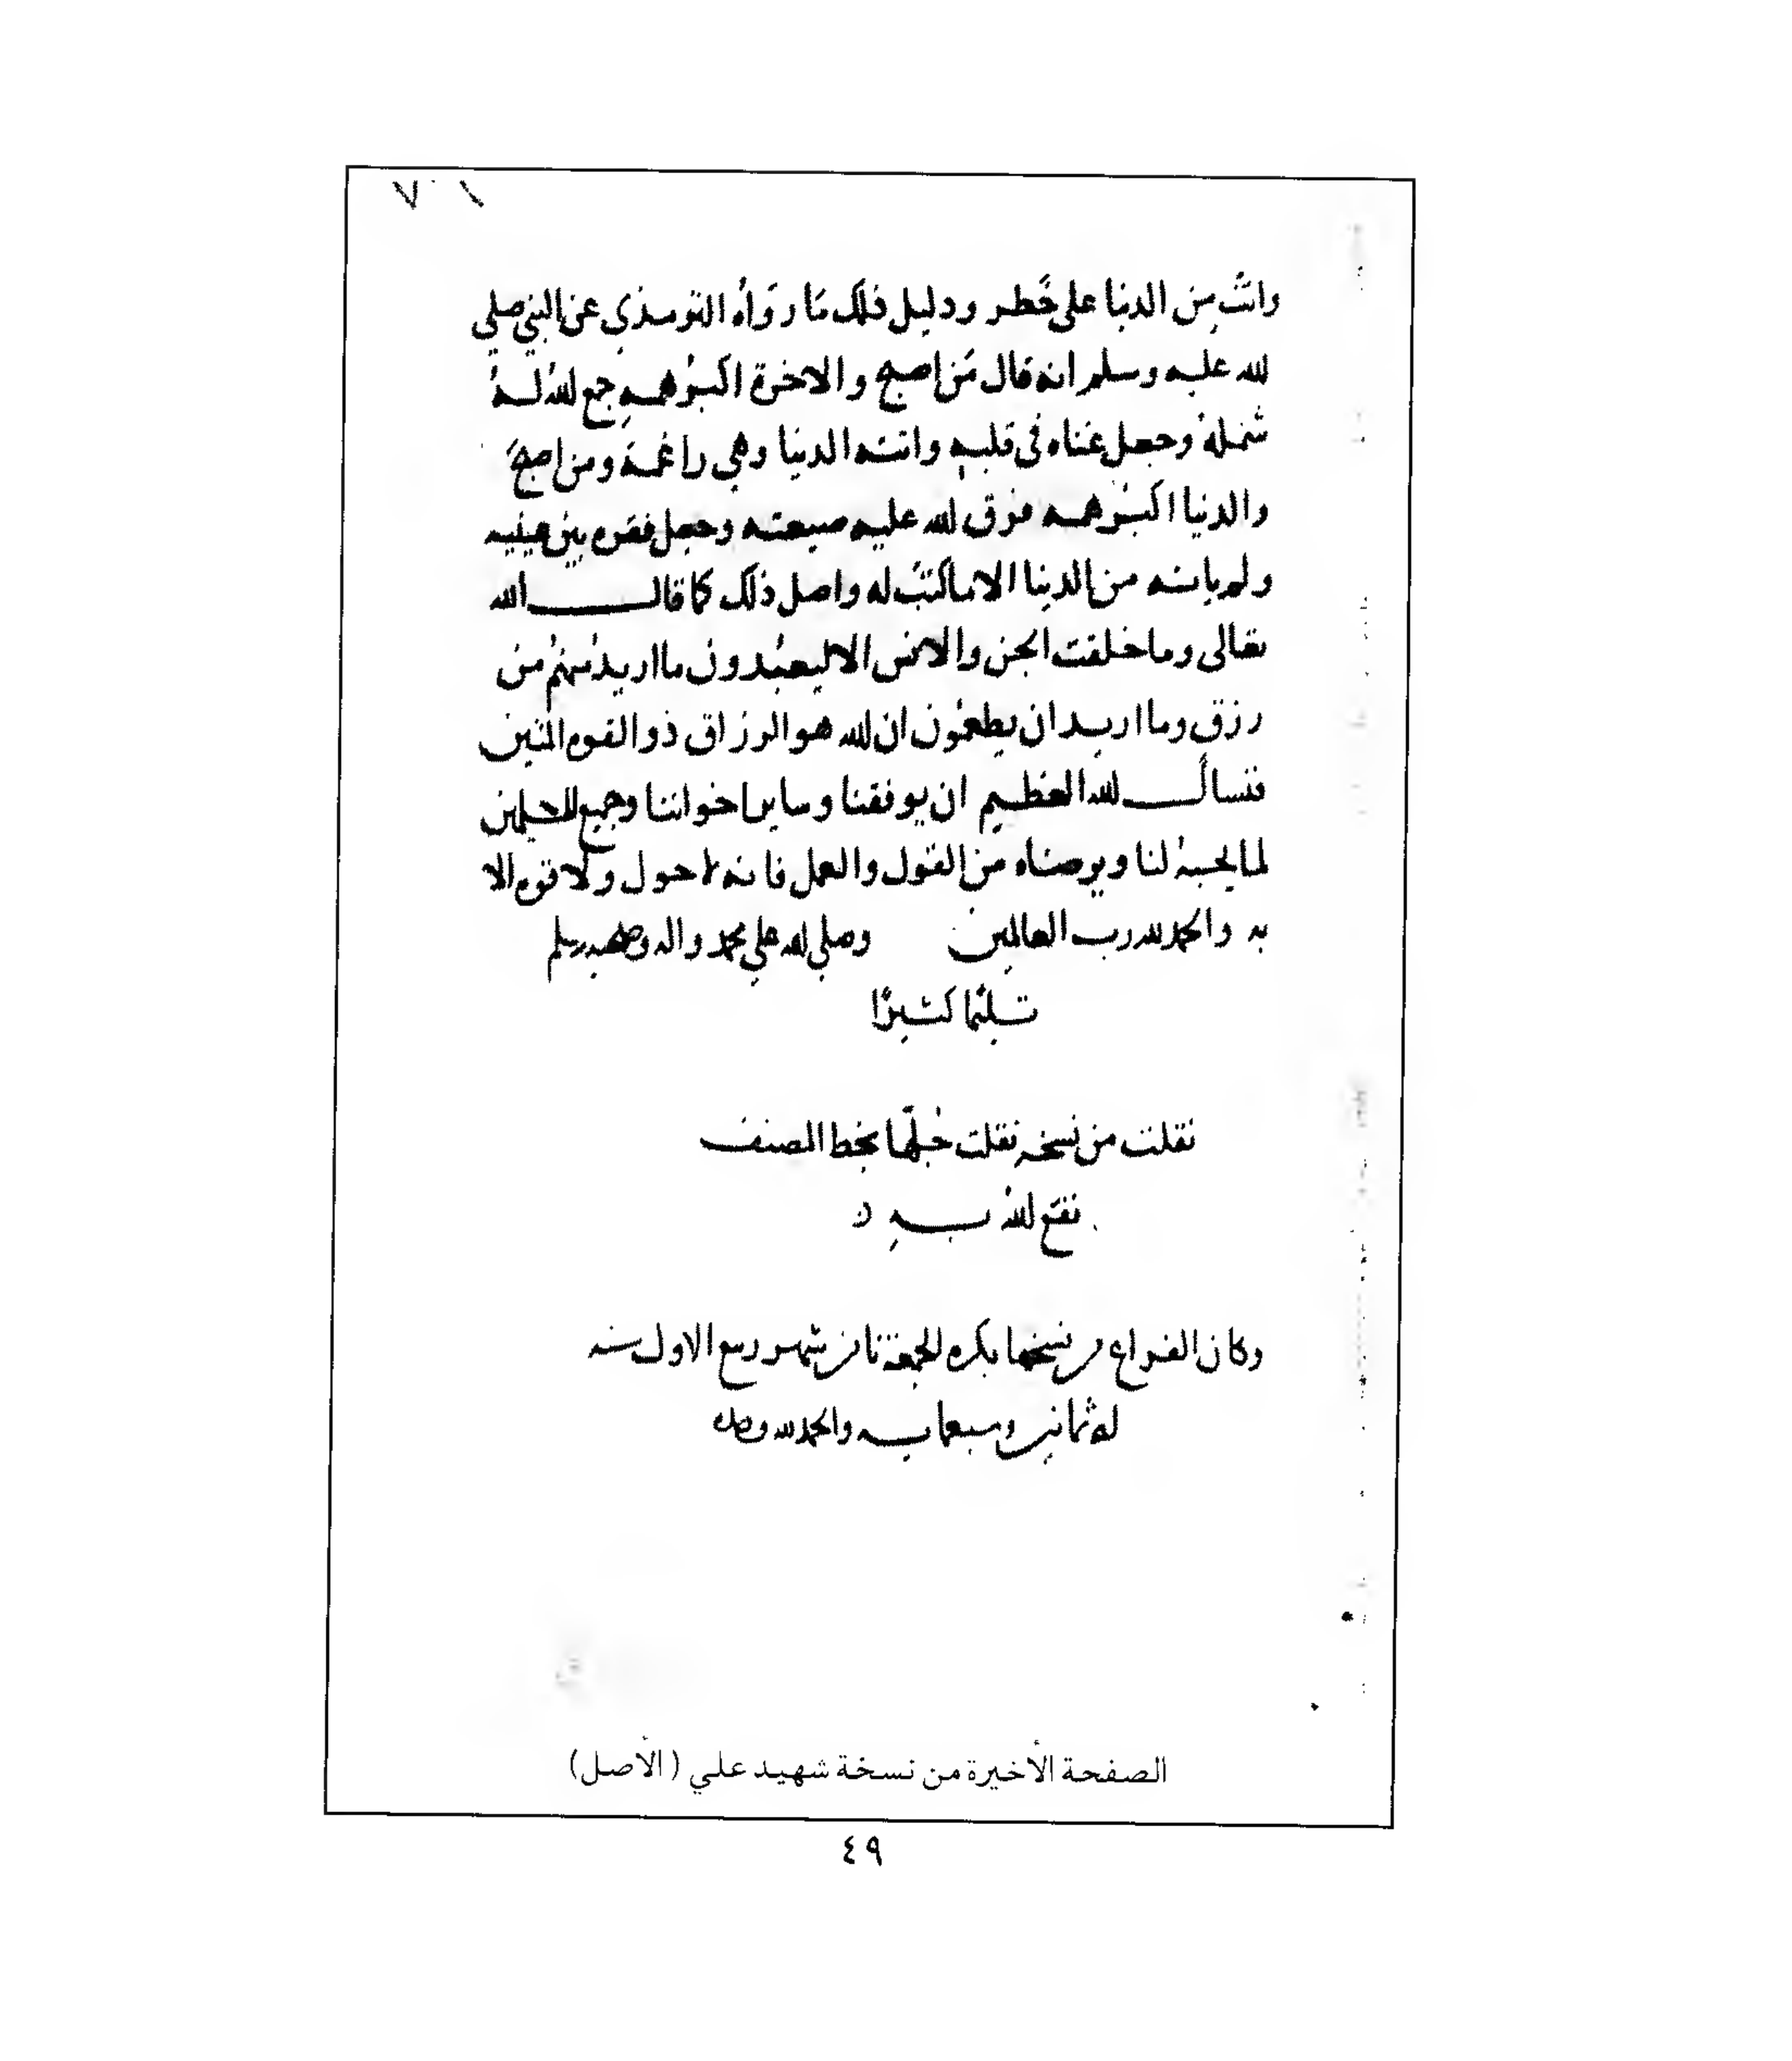 ٧٠١
وانت من الدنيا على خطر ودليل ذلك ما رواه الترمذي عن النبي صلى
الله عليه وسلم انه قال من اصبح والاخرة اكبر همه جمع الله له
شمله وجعل غناه في قلبه واتته الدنيا وهي راغمة ومن اصبح
والدنيا اكبر همه فرق الله عليه ضيعته وجعل فقره بين عينيه
ولم ياته من الدنيا الا ما كتب له واصل ذلك كما قال الله
تعالى وما خلقت الجن والانس الا ليعبدون ما اريد منهم من
رزق وما اريد ان يطعمون ان الله هو الرزاق ذو القوه المتين
فنسال الله العظيم ان يوفقنا وساير اخواننا وجميع المسلمين
لما يحبه لنا ويرضاه من القول والعمل فانه لا حول ولا قوه الا
به والحمد لله رب العالمين وصلى الله على محمد واله وصحبه وسلم
تسليما كثيرا
نقلت من نسخه نقلت جلها بخط المصنف
نفع الله به
وكان الفراغ من نسخها بكره الجمعة ثامن شهر ربيع الاول سنه
ثمانين وسبعمايه والحمد لله وحده
الصفحة الأخيرة من نسخة شهيد علي (الأصل)
٤٩